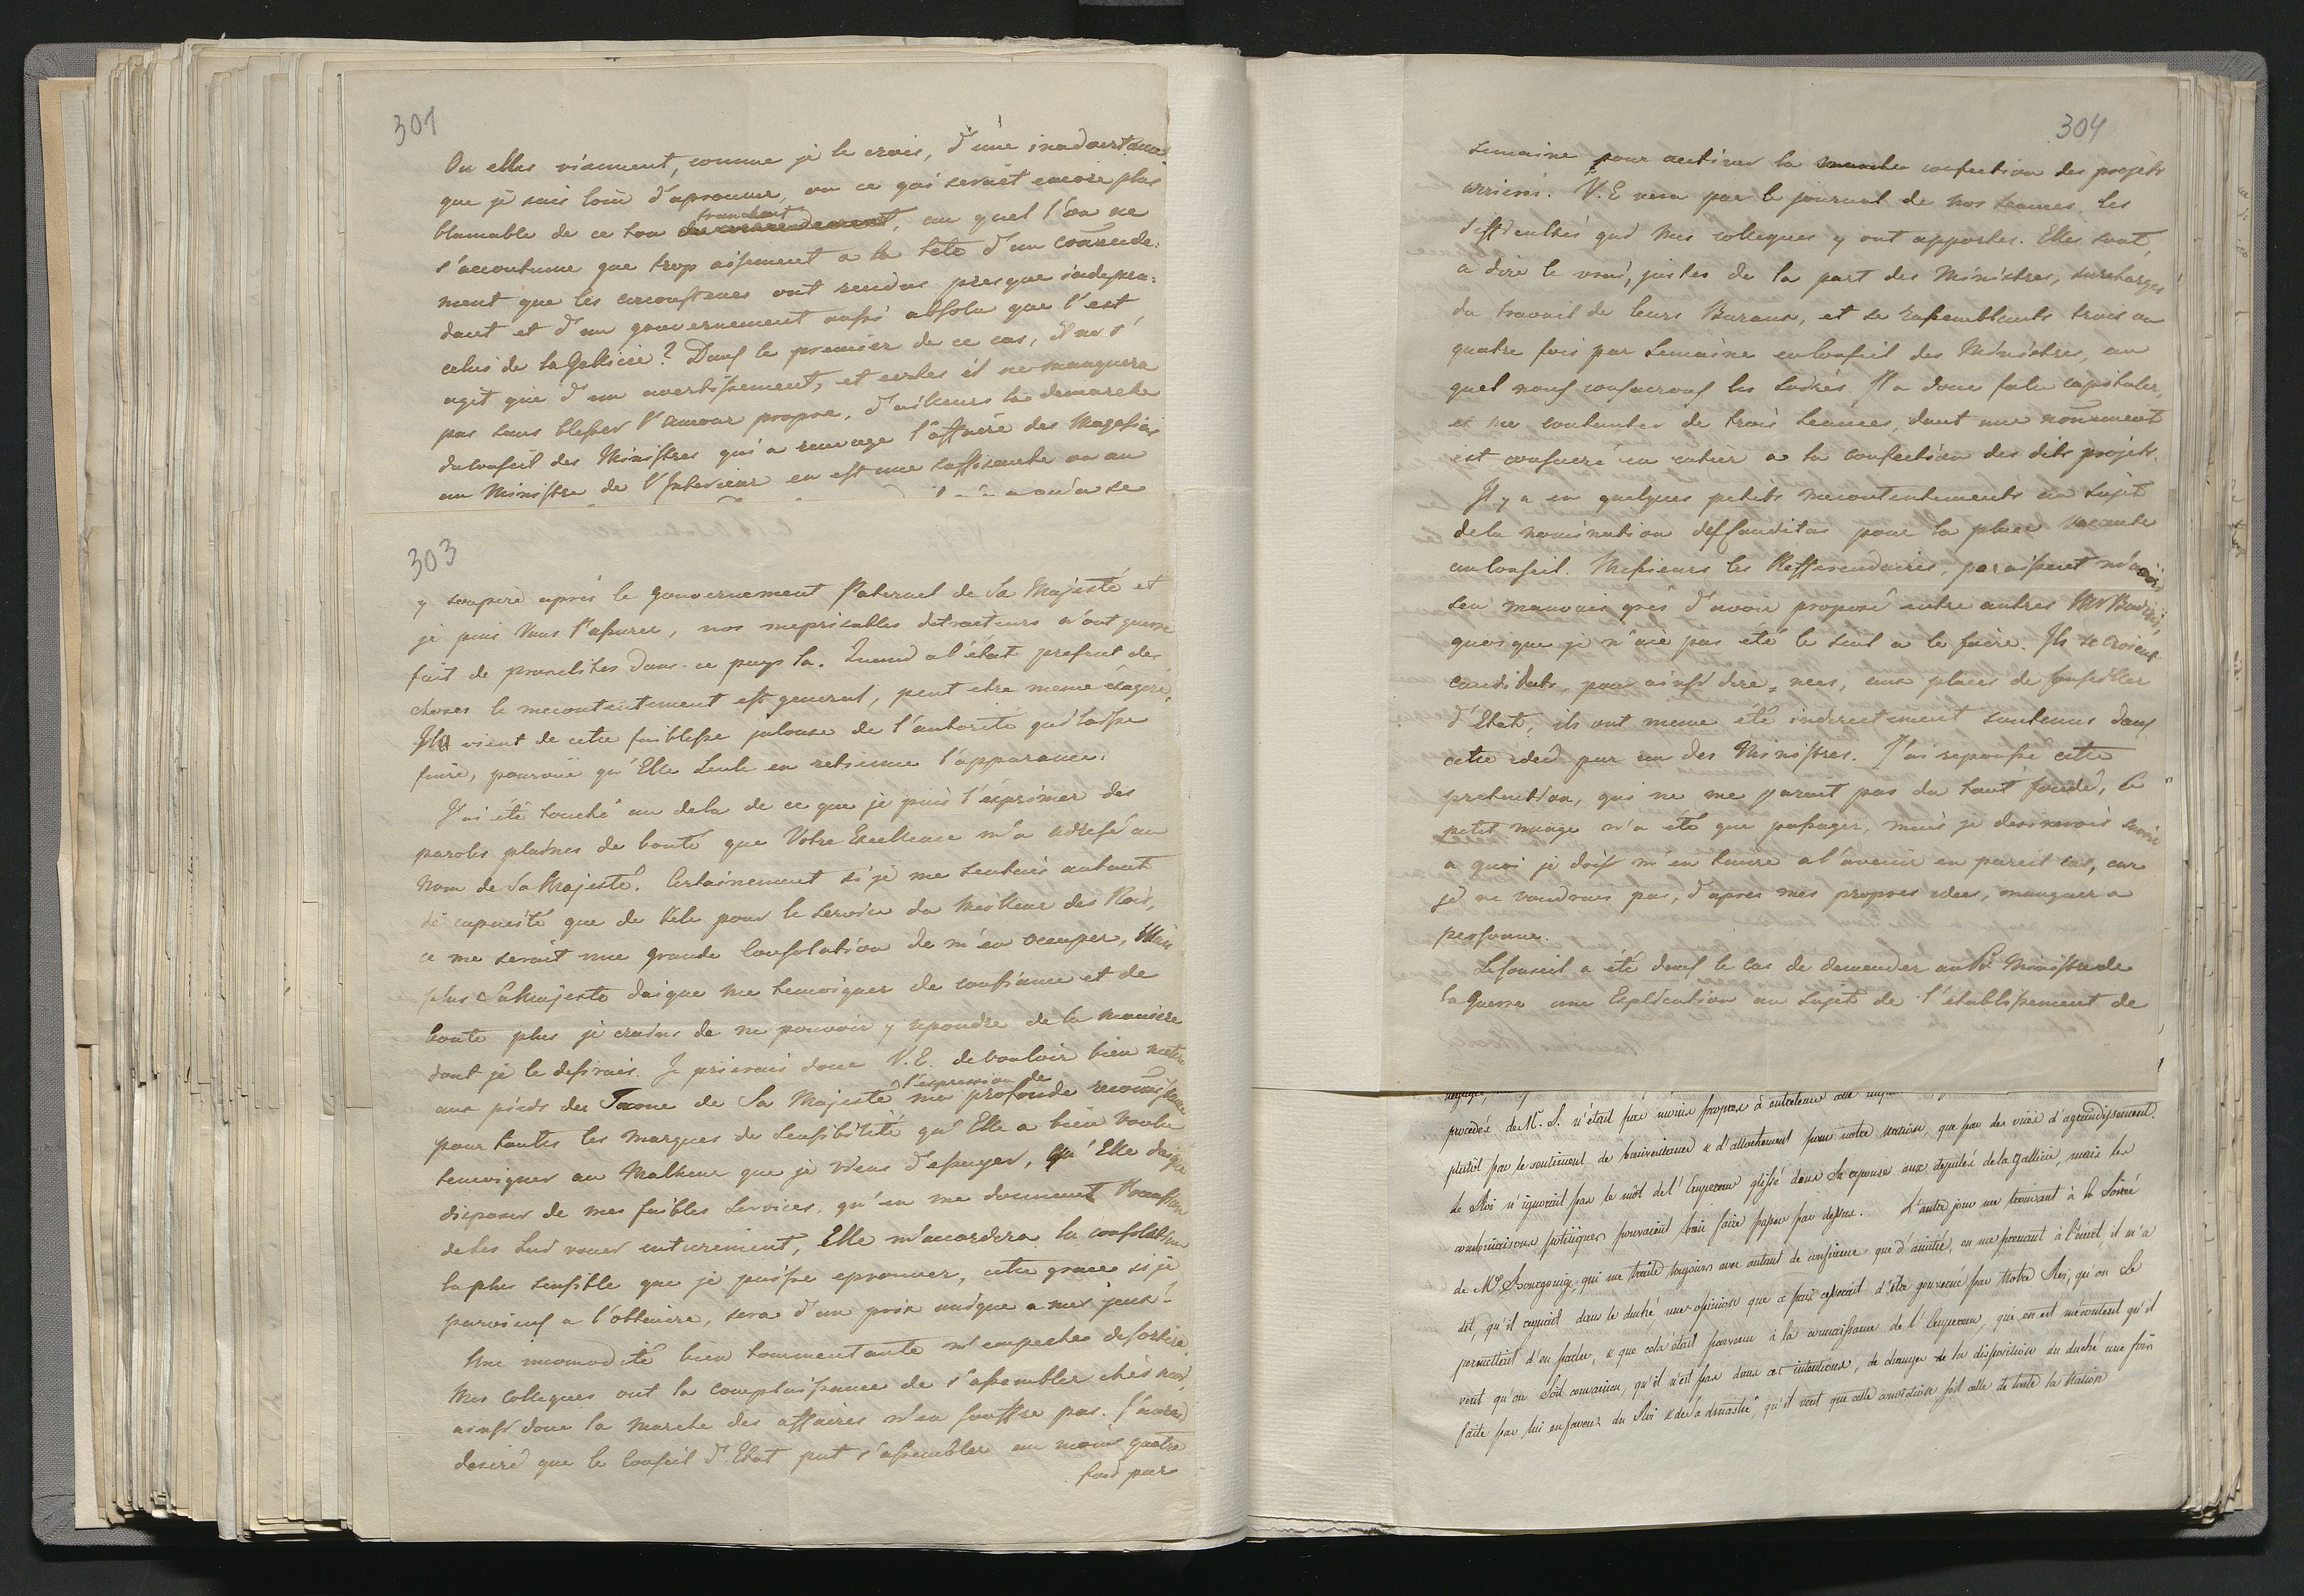 301
Ou elles viennent, comme je le crois, d'une inadvertance
que je suis loin d'aprouver, ou ce qui serait encore plus
blamable de ce ton tranchant, au quel l'on ne
s'accoutume que trop aisement a la tête d'un com̄ende-
ment que les circonstances ont rendus presque indepen-
dant et d'un gouvernement aussi absolu que l'est
celui de la Gallicie? Dans le premier de ce cas, il ne s'
agit que d'un avertissement, et certes il ne manquera
pas sans blesser l'amour propre, d'ailleurs la demarche
du Conseil des Ministres qui a renvoyé l'affaire des Magasins
au Ministre de l'Interieur en est une suffisante ou au
303
y soupire après le gouvernement Paternel de Sa Majesté et
je puis Vous l'assurer, nos meprisables detracteurs n'ont guerre
fait de proselites dans ce pays la. Quand a l'état present des
choses le mecontentement est general, peut etre meme éxageré,
Il vient de cette faiblesse jalouse de l'autorité qui laisse
faire, pourvuë qu'Elle seule en retienne l'apparance.
J'ai été touché au dela de ce que je puis l'éxprimer des
paroles pleines de bonté que Votre Excellence m'a adressé au
Nom de Sa Majesté. Certainement si je me sentais autant
de capacité que de Zele pour le service du Meilleur des Rois,
ce me serait une grande Consolation de m'en occuper, Mais
plus Sa Majesté daigne me temoigner de confiance et de
bonté plus je crains de ne pouvoir y repondre de la maniere
dont je le desirais. Je prierais donc V. E. de vouloir bien mettre
l'expression de
aux pieds du Trone de Sa Majesté ma profonde reconnaissance
pour toutes les marques de sensibilité qu'Elle a bien voulu
temoigner au Malheur que je viens d'essuyer, Qu'Elle daigne
disposer de mes faibles services, qu'en me donnant l'occasion
de les lui vouer entierement, Elle m'accordera la consolation
la plus sensible que je puisse eprouver, cette grace si je
parviens a l'obtenire, sera d'un prix unique a mes yeux.
Une incomodité bien tourmentante m'empeche de sortire
Mes collegues ont la complaisance de s'assembler chès moi,
ainsi donc la marche des affaires n'en souffre pas. J'aurais
desiré que le Conseil d'Etat put s'assembler au moins quatre
fois par
304
semaine pour activer la marche confection des projets
arrierés. V. E verra par le journal de nos seances, les
difficultés que mes collegues y ont apportes. Elles sont,
a dire le vrai, justes de la part des Ministres, surchargés
du travail de leurs Buraux, et se rassemblants trois ou
quatre fois par semaine en Conseil des Ministres, au
quel nous consacrons les soirées. Il a donc falu capituler,
et me contenter de trois seances, dont une nom̄ement
est consacré en entier a la confection des dits projets.
Il y a eu quelques petits mecontentements au sujet
de la nomination des Canditas pour la place vacante
au Conseil. Messieurs les Refferendaires, paraissent m'avoir
seu mauvais grés d'avoir proposé entre autres Mr
quoique je n'aie pas été le seul a le faire. Ils se croient
candidats, pour ainsi dire, nées, aux places de Conseiller
d'Etat, ils ont meme été indirectement soutenus dans
cette idée par un des Ministres. J'ai repoussé cette
pretention, qui ne me parait pas du tout fondé, le
petit nuage n'a été que passager, mais je desirerois savoir
a quoi je dois m'en tenire a l'avenir en pareil cas, car
je ne voudrais pas, d'apres mes propres idées, manquer a
personne.
Le Conseil a été dans le cas de demander au Pr. Ministre de
la Guerre une Explication au sujet de l'établissement de
procédés de M. S. n'était pas moins propre à entretenir cette
plutôt par le sentiment de bienveillance & d'attachement pour notre nation, que par des vües d'agrandissement.
Le Roi n'ignorait pas le mot de l'Empereur glissé dans sa reponse aux députés de la Gallicie, mais les
combinaisons politiques pouvaient bien faire passer par dessus. L'autre jour me trouvant à la Soirée
de Mr Bourgoing, qui me traite toujours avec autant de confiance que d'amitié, en me prenant à l'écart, il m'a
dit, qu'il regnait dans le duché une opinion que ce pais cesserait d'être gouverné par Notre Roi, qu'on se
permettait d'en parler, & que cela était parvenu à la connaissance de l'Empereur, qui en est mécontent qu'il
veut qu'on soit convaincu, qu'il n'est pas dans ces intentions, de changer de la disposition du duché une fois
faite par lui en faveur du Roi & de sa dinastie, qu'il veut que cette conviction soit celle de toute la Nation